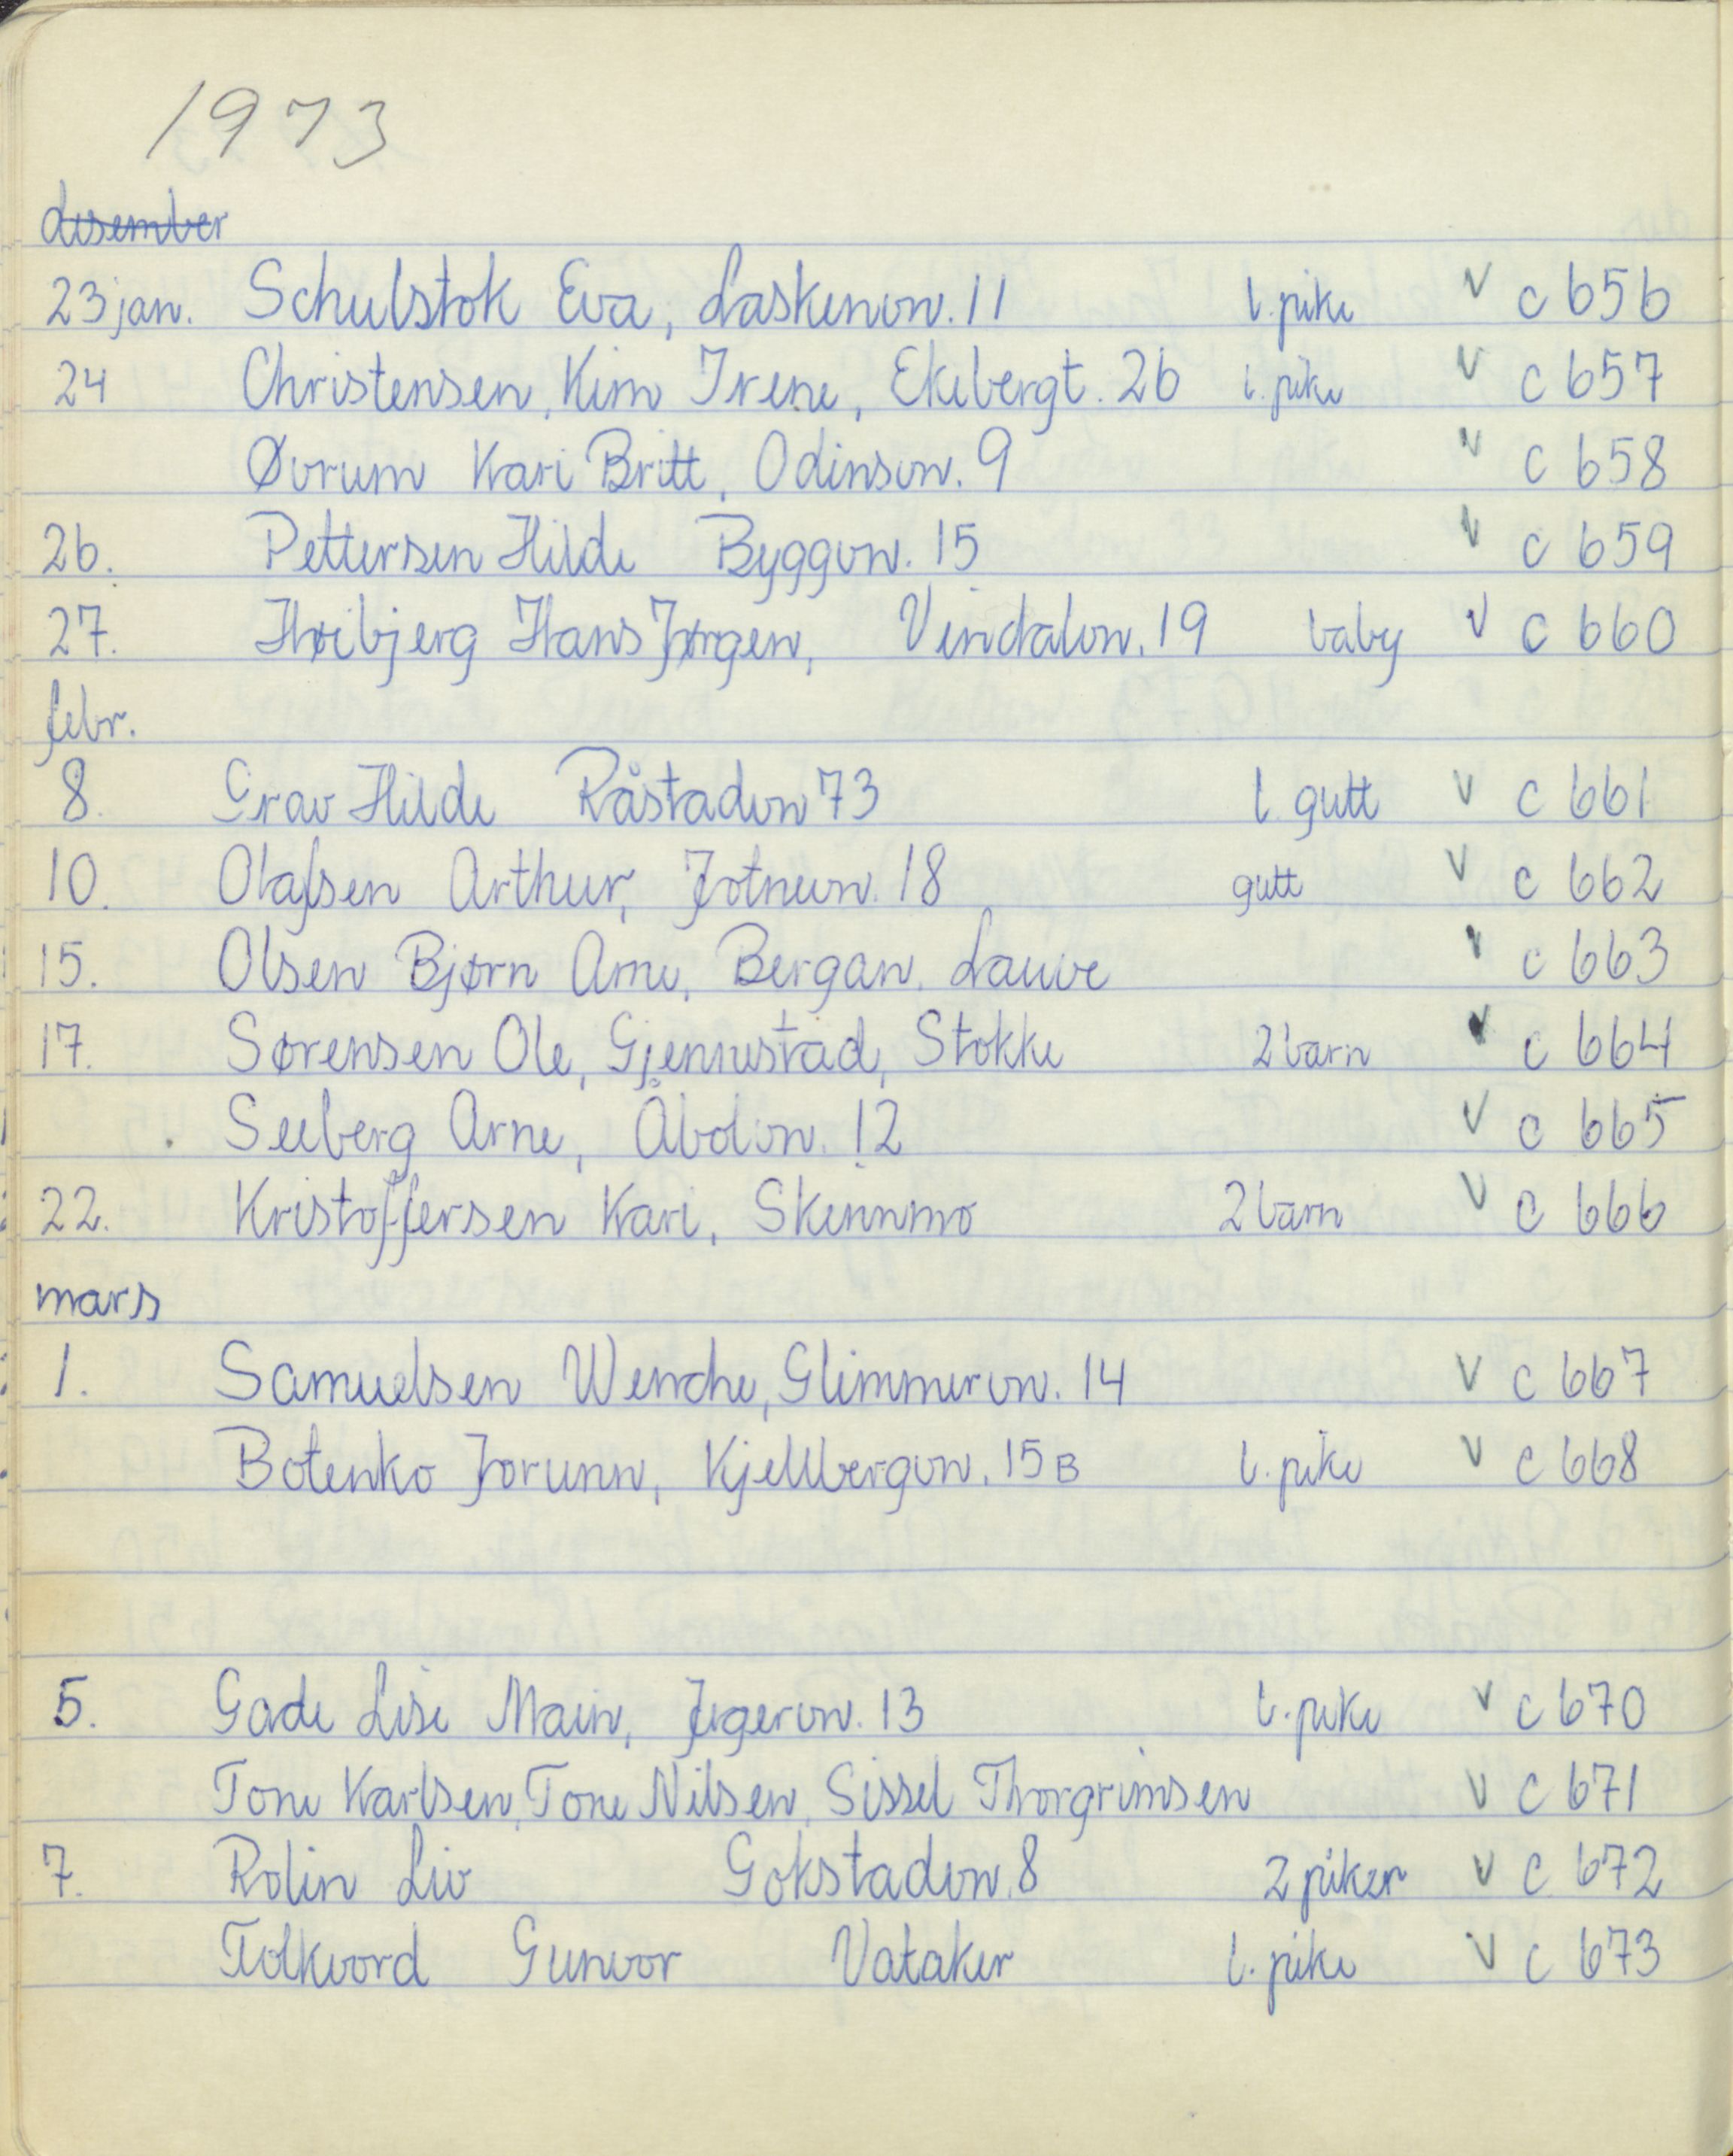 1973
desember
23 jan. Schulstok Eva, Laskenvn. 11 l. pike V c 656
24 Christensen, Kim Irene, Ekebergt. 26 l. pike V c 657
Øvrum Kari Britt, Odinsvn. 9 V c 658
26. Pettersen Hilde Byggvn. 15 V c 659
27. Høibjerg Hans Jørgen, Vindalvn. 19 baby V c 660
febr.
8. Grav Hilde Råstadvn 73 l. gutt V c 661
10. Olafsen Arthur, Jotnevn. 18 gutt V c 662
15. Olsen Bjørn Arne, Bergan, Lauve V c 663
17. Sørensen Ole, Gjennestad, Stokke 2 barn V c 664
Seeberg Arne, Åbolvn. 12 V c 665
22. Kristoffersen Kari, Skennmo 2 barn V c 666
mars
1. Samuelsen Wenche, Glimmervn. 14 V c 667
Botenko Jorunn, Kjellbergvn. 15 B l. pike V c 668
5. Gade Lise Main, Jegervn. 13 l. pike V c 670
Tone Karlsen, Tone Nilsen, Sissel Thorgrimsen V c 671
7. Rolin Liv Gokstadvn. 8 2 piker V c 672
Tolkvord Gunvor Vataker l. pike V c 673